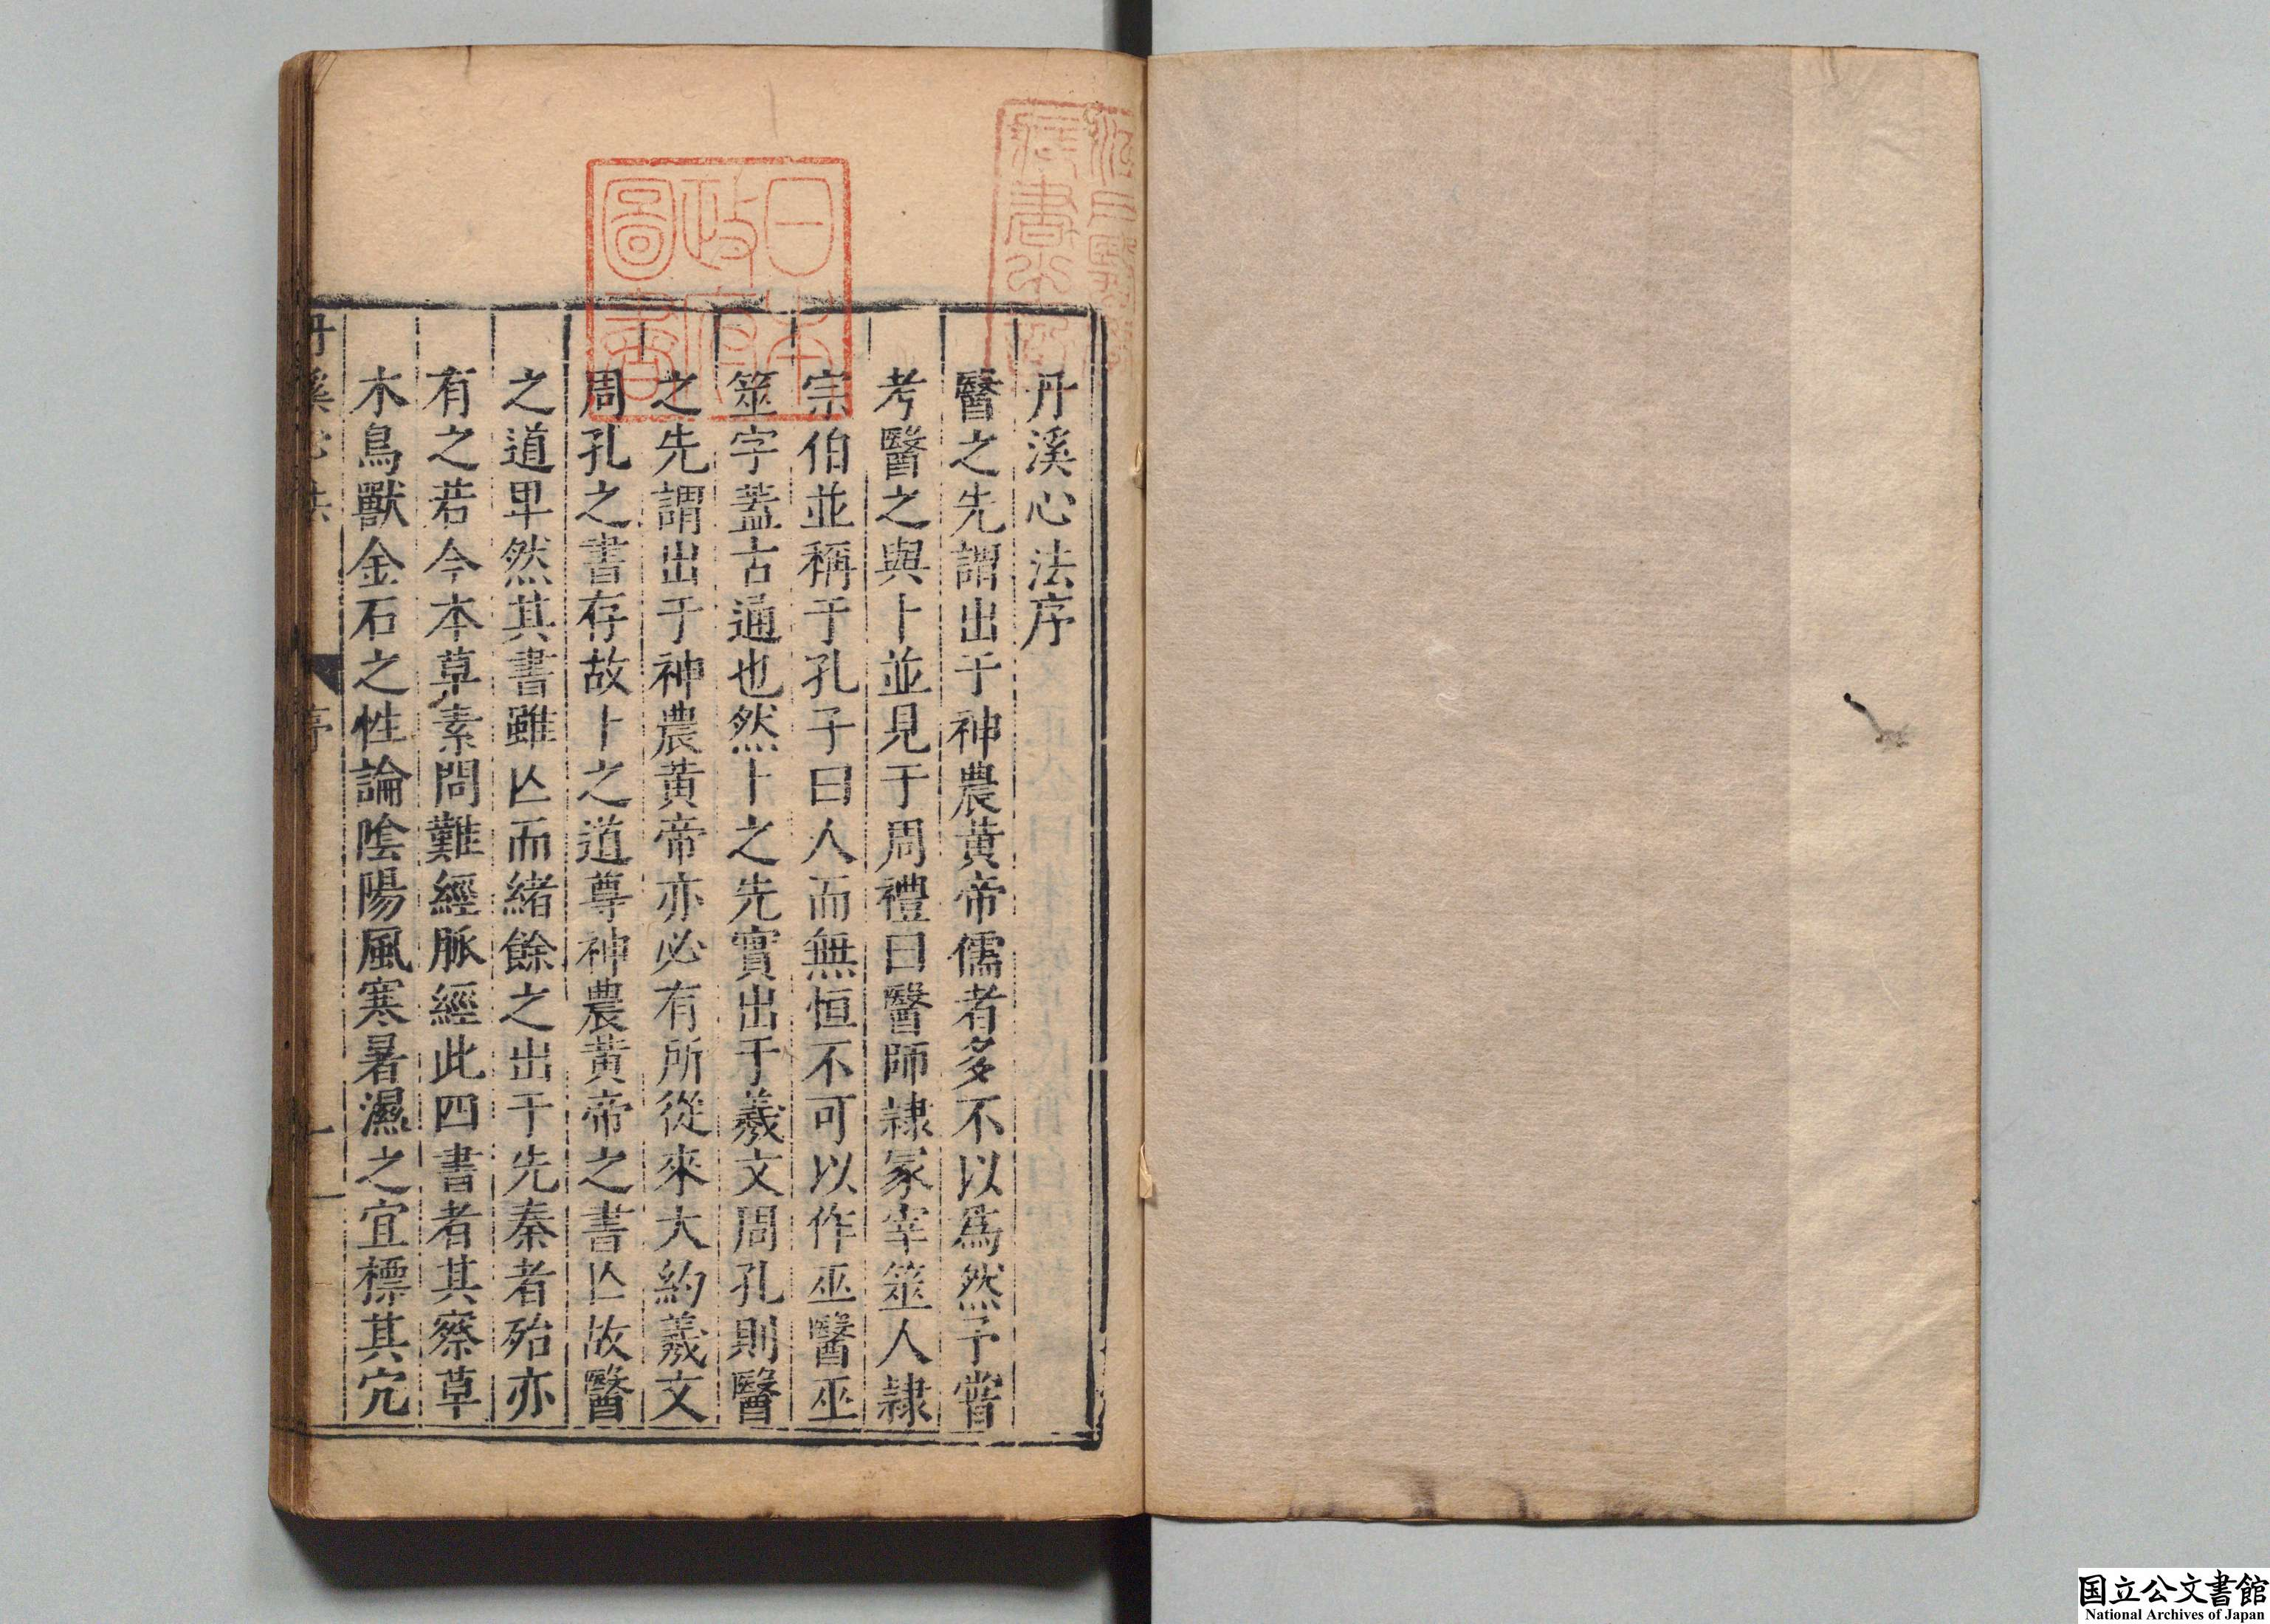 丹溪心法序
醫之先謂出于神農黃帝儒者多不以爲然予嘗
考醫之與卜並見于周禮曰醫師隷冢宰筮人隷
宗伯並稱于孔子曰人而無恒不可以作巫醫巫
筮字蓋古通也然卜之先實出于羲文周孔則醫
之先謂出于神農黃帝亦必有所從來大約羲文
周孔之書存故卜之道尊神農黃帝之書亾故醫
之道卑然其書雖亾而緒餘之出于先秦者殆亦
有之若今本草素問難經脉經此四書者其察草
木鳥獸金石之性論陰陽風寒暑濕之宜標其穴
丹溪心法
序
一
日本
政府
圖書
藏書
国立公文書館
National Archives of Japan